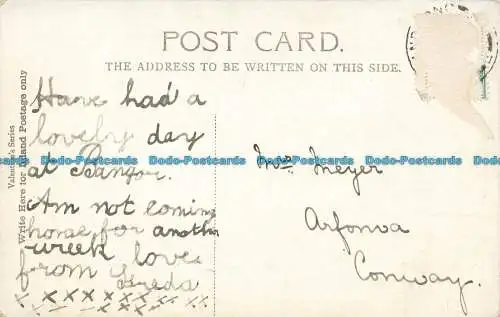 POST CARD.
THE ADDRESS TO BE WRITTEN ON THIS SIDE.
Valentine's Series
Write Here for Inland Postage only
Have had a
lovely day
at Bangor.
Am not coming
home for another
week love
from Freda
x x x x x x x x x x
x x x x x x x x x
Mrs Meyer
Arfonva
Conway.
Dodo-Postcards Dodo-Postcards Dodo-Postcards Dodo-Postcards Dodo-Postcards